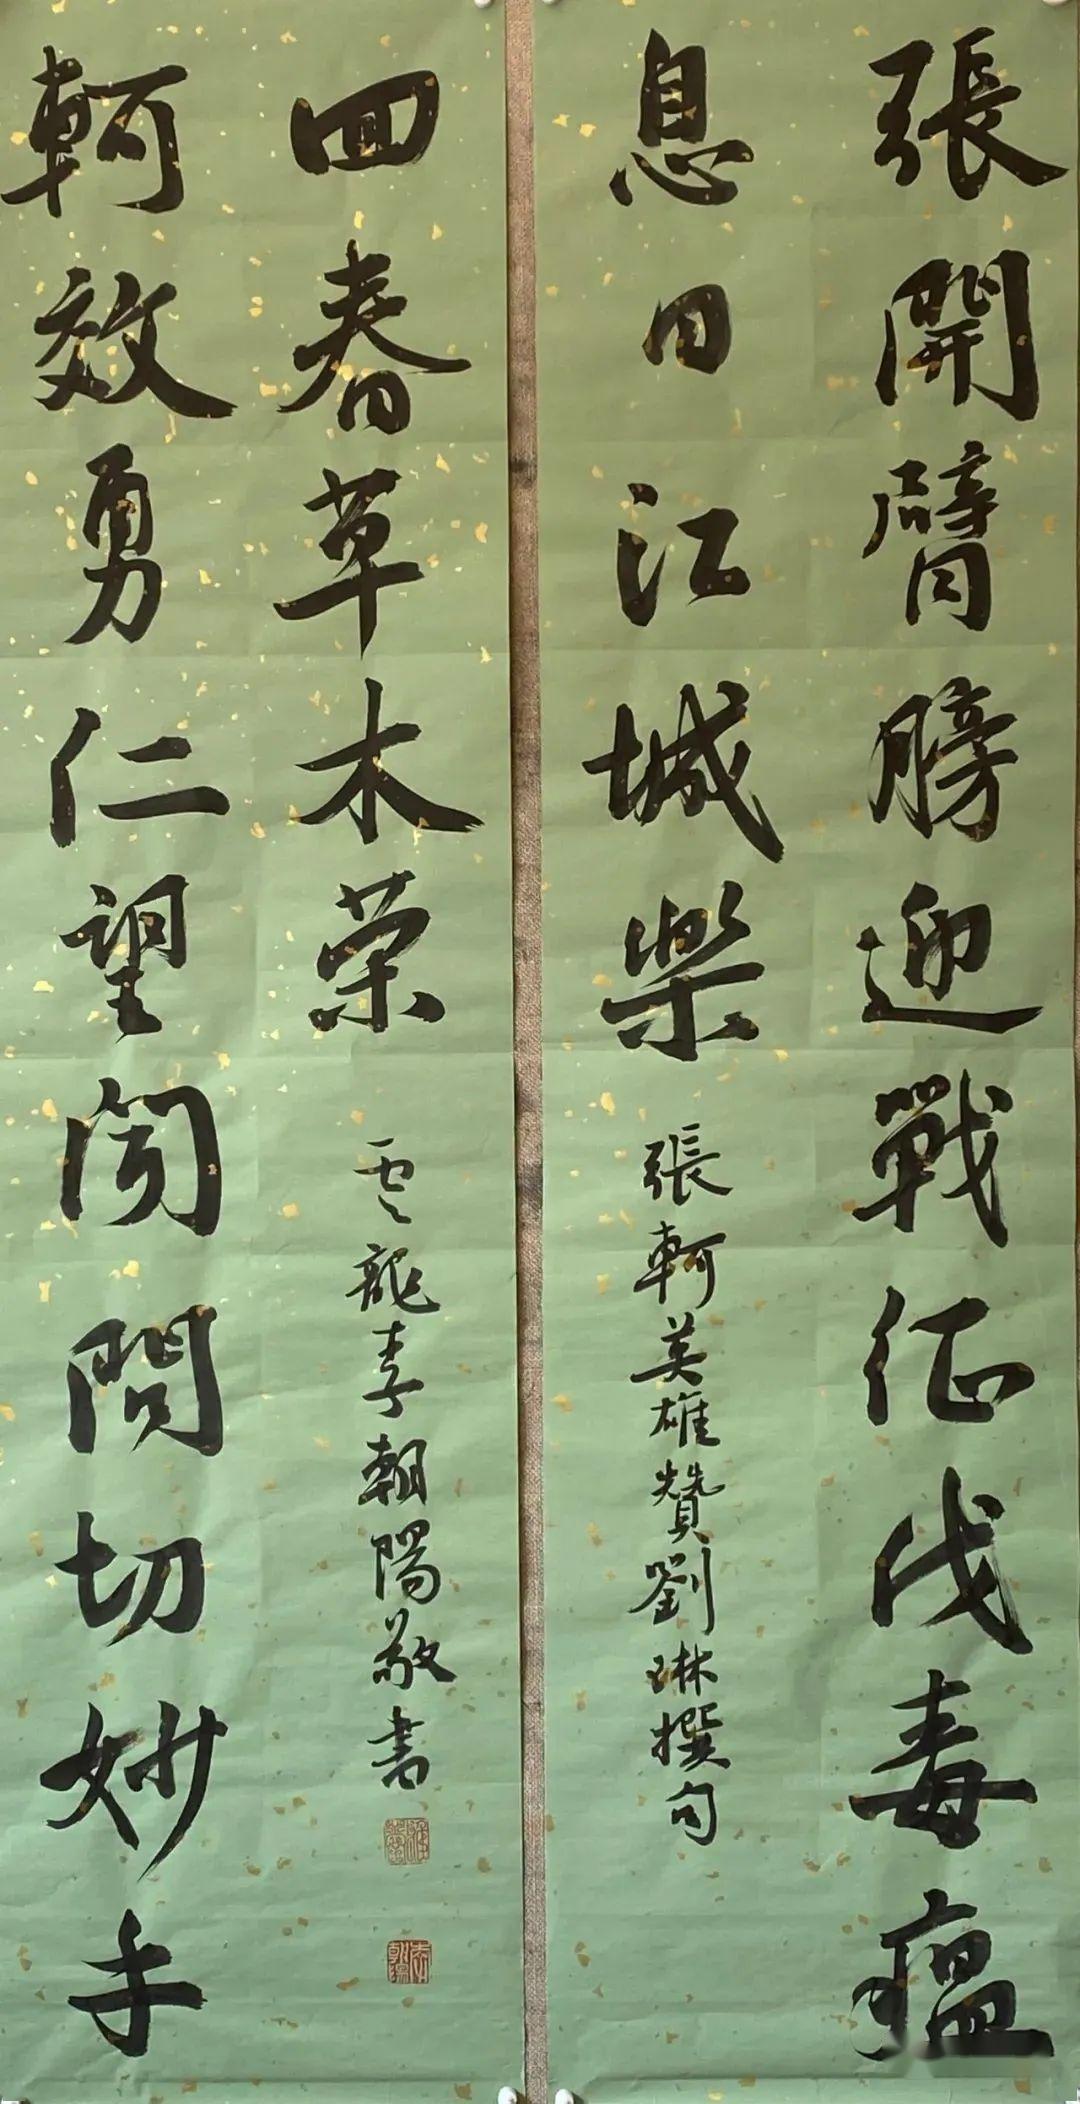 張開臂膀迎戰征伐毒瘟
息日江城樂
張軻英雄贊劉琳撰句
軻效勇仁望聞問切妙手
回春草木荣
雲龍李朝陽敬書